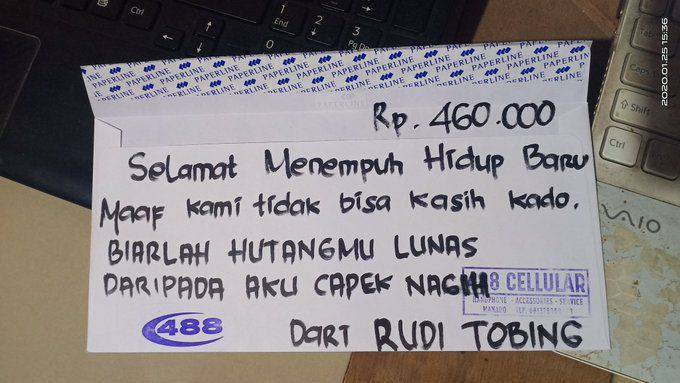 2020.01.25 15:36
End
Ctrl
Caps
Shift
Ctrl
VAIO
PAPERLINE PAPERLINE PAPERLINE PAPERLINE PAPERLINE
Rp. 460.000
Selamat Menempuh Hidup Baru
Maaf kami tidak bisa kasih kado.
BIARLAH HUTANGMU LUNAS
DARIPADA AKU CAPEK NAGIH
CELLULAR
HANDPHONE - ACCESSORIES - SERVICE
MANADO
488
DARI RUDI TOBING